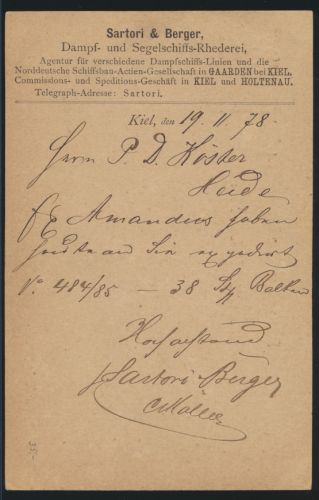 Sartori & Berger,
Dampf- und Segelschiffs-Rhederei,
Agentur für verschiedene Dampfschiffs-Linien und die
Norddeutsche Schiffsbau-Actien-Gesellschaft in GAARDEN bei KIEL.
Commissions- und Speditions-Geschäft in KIEL und HOLTENAU.
Telegraph-Adresse: Sartori.
Kiel, den 19. 11. 78.
Herrn P. D. Köster
Heide
Amandus haben
heute an Sie expedirt
No. 484/85 — 38 Balken
Hochachtend
Sartori & Berger
Möller